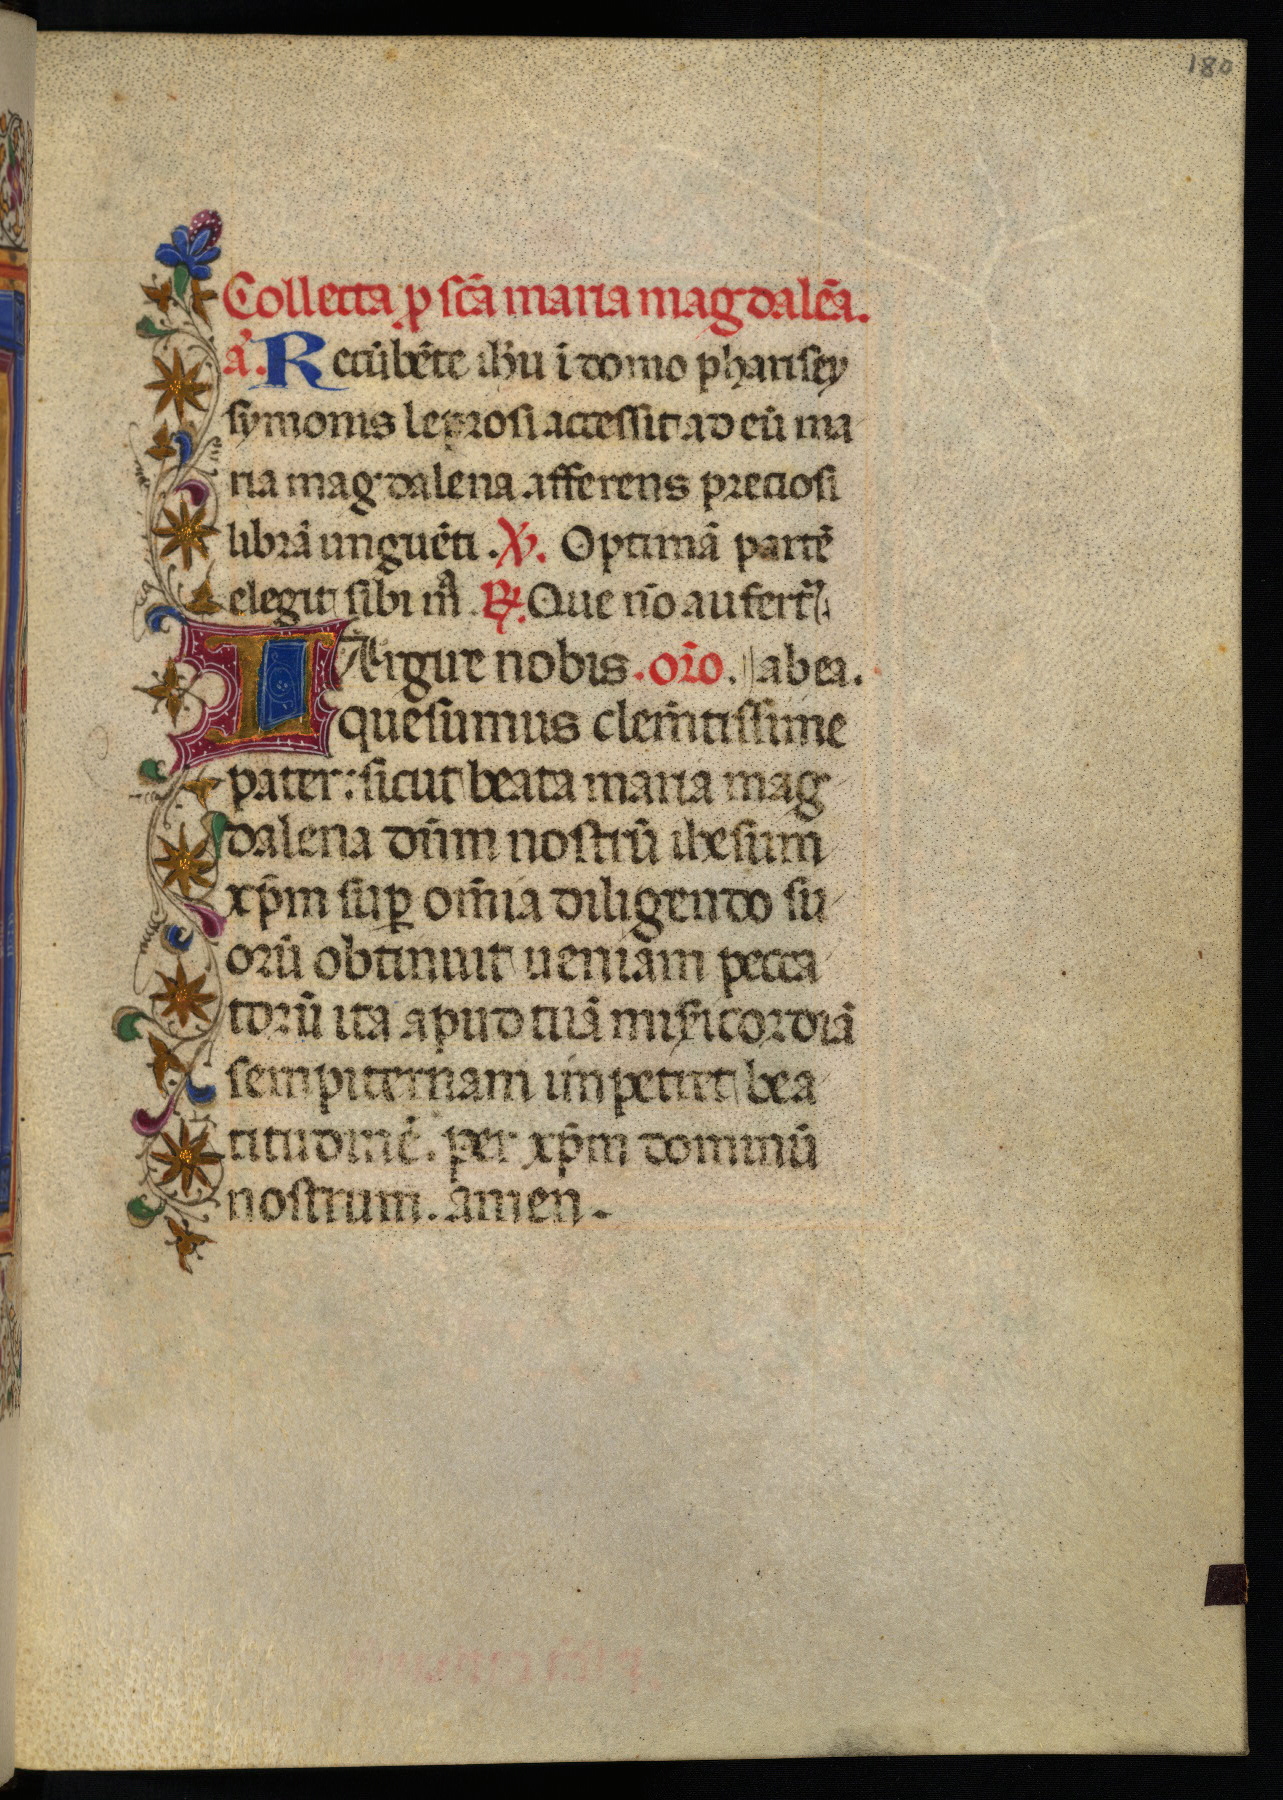 180
Collecta ꝑ sc̄a maria magdalēa.
a͂. Recūbēte ih̄u ī domo pharisey
symonis leprosi accessit ad eū ma
ria magdalena afferens preciosi
librā unguēti. ℣. Optimā partē
elegit sibi mᵃ. ℟. Que nō aufert᷑ ab ea.
Largire nobis. or̄o.
quesumus clem̄tissime
pater: sicut beata maria mag
dalena dn̄m nostrū ihesum
xp̄m suꝑ om̄ia diligendo su
orū obtinuit ueniam pecca
torū ita apud tuā mis̄icordiā
sempiternam impetret bea
titudinē. per xp̄m dominū
nostrum. amen.